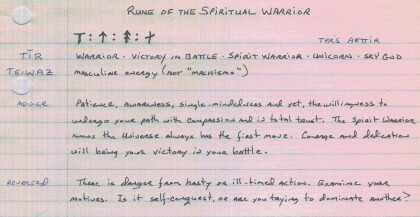 RUNE OF THE SPIRITUAL WARRIOR
TYR'S AETTIR
TĪR WARRIOR · VICTORY IN BATTLE · SPIRIT WARRIOR · UNICORN · SKY GOD
TEIWAZ MASCULINE ENERGY (NOT "MACHISMO")
ADVICE Patience, awareness, single-mindedness and yet, the willingness to
undergo your path with compassion and in total trust. The Spirit Warrior
knows the Universe always has the first move. Courage and dedication
will bring your victory in your battle.
REVERSED There is danger from hasty or ill-timed action. Examine your
motives. Is it self-conquest, or are you trying to dominate another?